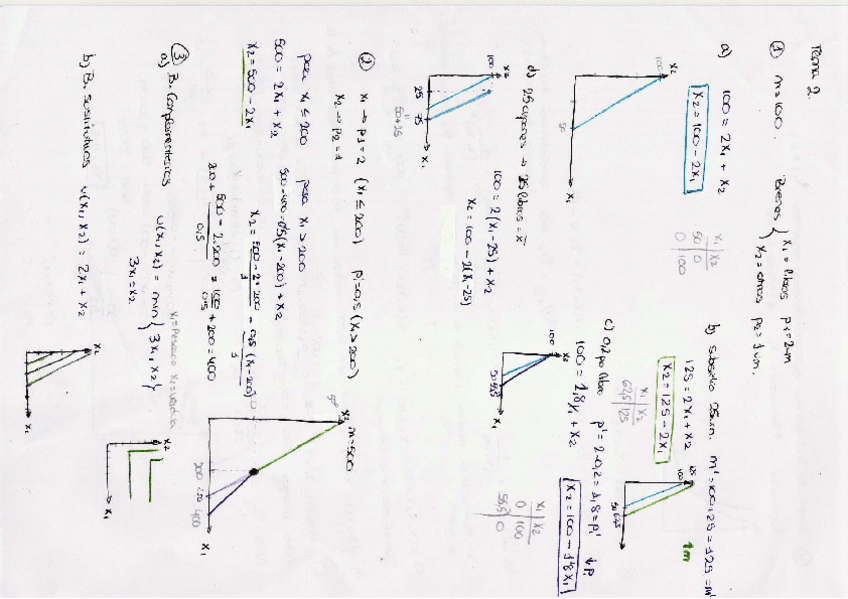 Tema 2.
① m=100. Bienes { x₁ = libros p₁=2um
x₂ = otros p₂=1um.
a) 100 = 2x₁ + x₂
x₂ = 100 - 2x₁
x₁ | x₂
50 | 0
0 | 100
x₂
100
50
x₁
b) subsidio 25um. m' = 100+25 = 125 = m'
125 = 2x₁ + x₂
x₂ = 125 - 2x₁
x₁ | x₂
62,5 | 125
x₂
125
100
50 62,5
↑m
c) 0,2 por libro p' = 2-0,2 = 1,8 = p₁' ↓p₁
100 = 1,8x₁ + x₂
x₂ = 100 - 1'8x₁
x₁ | x₂
0 | 100
55,5 | 0
x₂
100
50 55,5
x₁
d) 25 cupones → 25 libros = x̄
100 = 2(x₁-25) + x₂
x₂ = 100 - 2(x₁-25)
x₂
100
25
75
50+25
x₁
② x₁ → p₁=2 (x₁ ≤ 200) p₁'=0,5 (x₁ > 200)
x₂ → p₂=1
m=500.
para x₁ ≤ 200
500 = 2x₁ + x₂
x₂ = 500 - 2x₁
para x₁ > 200
500-400 = 0'5(x₁-200) + x₂
x₂ = 500 - 2·200 / 1 - 0,5 (x₁-200) / 1
200 + 500 - 2·200 / 0,5 = 100 / 0,5 + 200 = 400
x₂
200 250 400
x₁
③
a) B. Complementarios u(x₁,x₂) = min { 3x₁, x₂ }
3x₁ = x₂
x₂
x₁
b) B. sustitutivos u(x₁, x₂) = 2x₁ + x₂
x₂
x₁